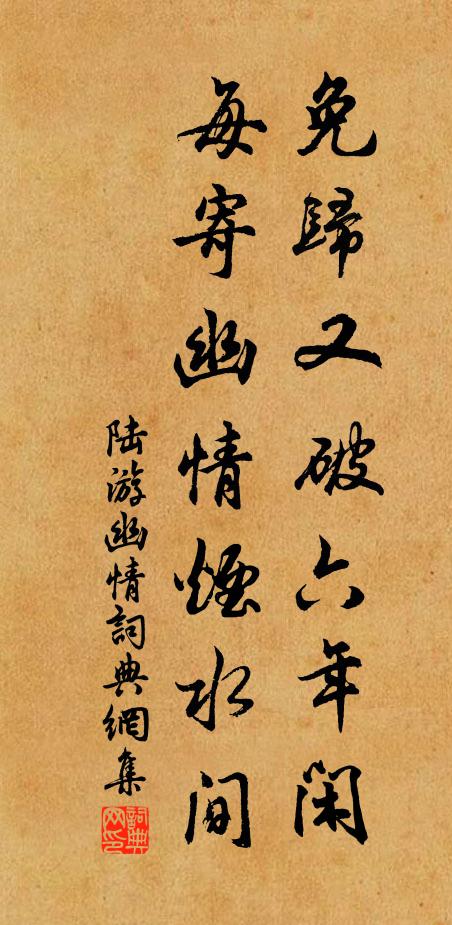 免歸又破六年闲
每寄幽情煙水间
陆游幽情詞典網集
詞典网印